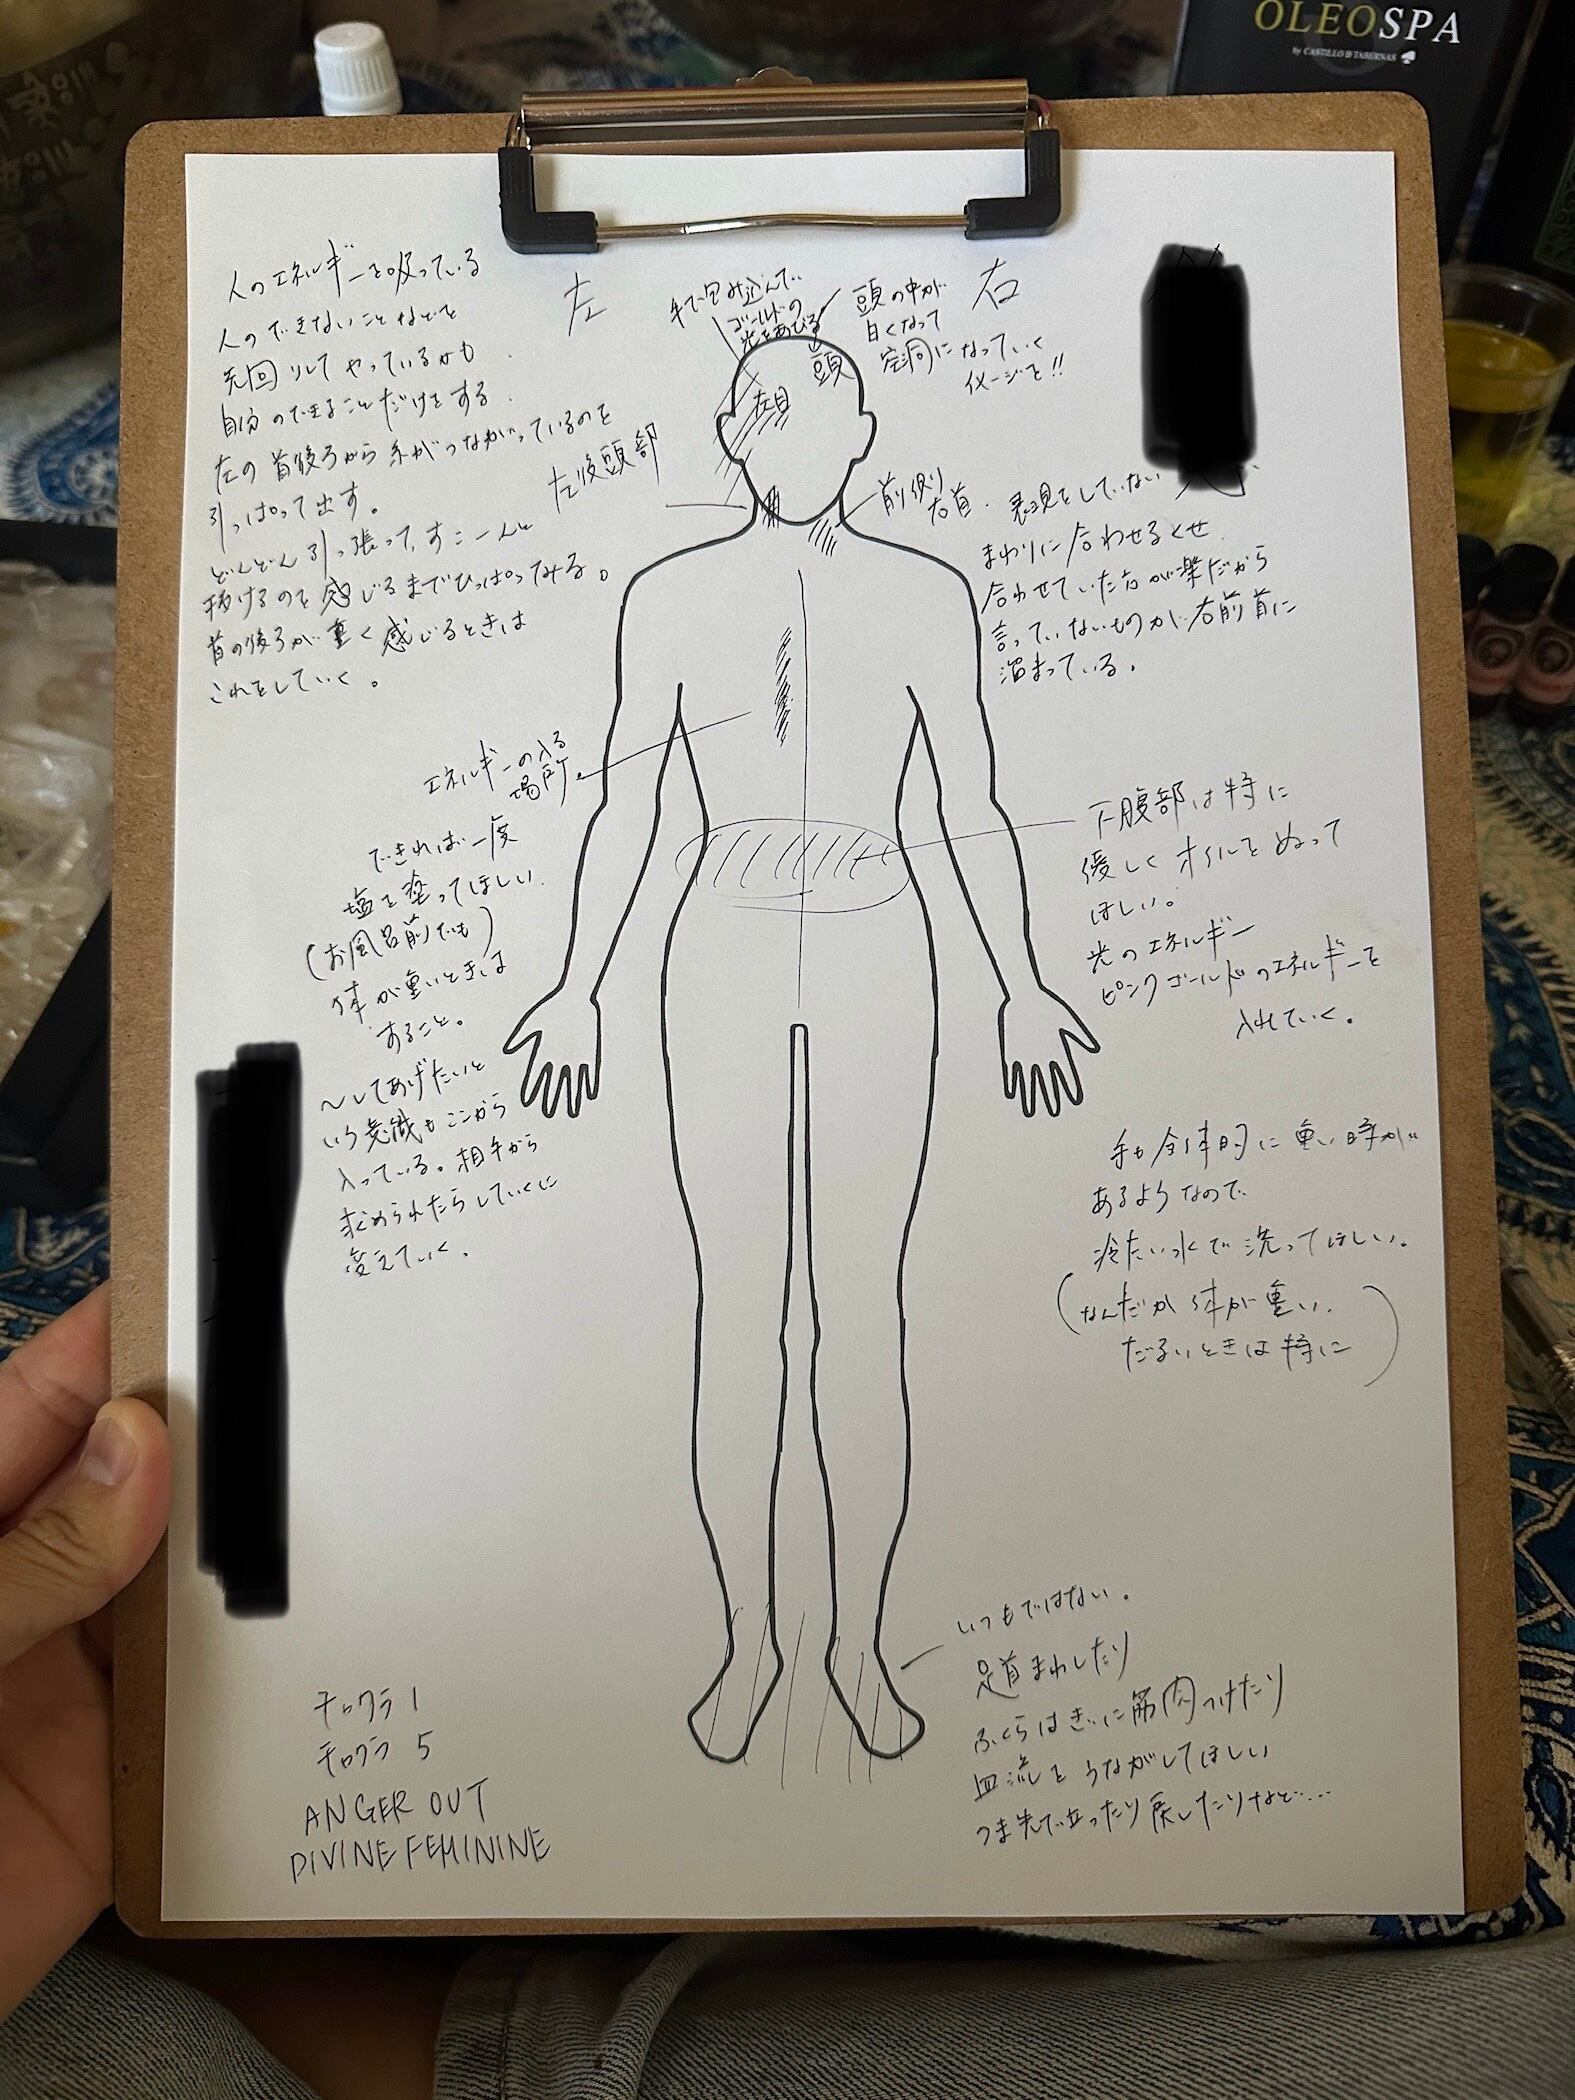 OLEOSPA
by CASTILLO D TABERNAS
左
右
人のエネルギーを吸っている
人のできないことなどを
先回りしてやっているかも
自分のできることだけをする。
左の首後ろから糸がつながっているのを
引っぱって出す。
どんどん引っ張って、すこーんと
抜けるのを感じるまでひっぱってみる。
首の後ろが重く感じるときは
これをしていく。
手で包み込んで
ゴールドの
光をあびる
頭の中が
白くなって
空洞になっていく
イメージを!!
頭
左目
左後頭部
前側
右首・表現をしていない
まわりに合わせるくせ
合わせていた方が楽だから
言っていないものが右前首に
溜まっている。
エネルギーの入る
場所。
できれば一度
塩を塗ってほしい
(お風呂前でも)
体が重いときは
すること。
〜してあげたいと
いう意識もここから
入っている。相手から
求められたらしていくに
変えていく。
下腹部は特に
優しくオイルをぬって
ほしい。
光のエネルギー
ピンクゴールドのエネルギーを
入れていく。
手も全体的に重い時が
あるようなので
冷たい水で洗ってほしい。
(なんだか体が重い、
だるいときは特に)
いつもではない。
足首まわしたり
ふくらはぎに筋肉つけたり
血流をうながしてほしい
つま先で立ったり戻したりなど……
チャクラ 1
チャクラ 5
ANGER OUT
DIVINE FEMININE